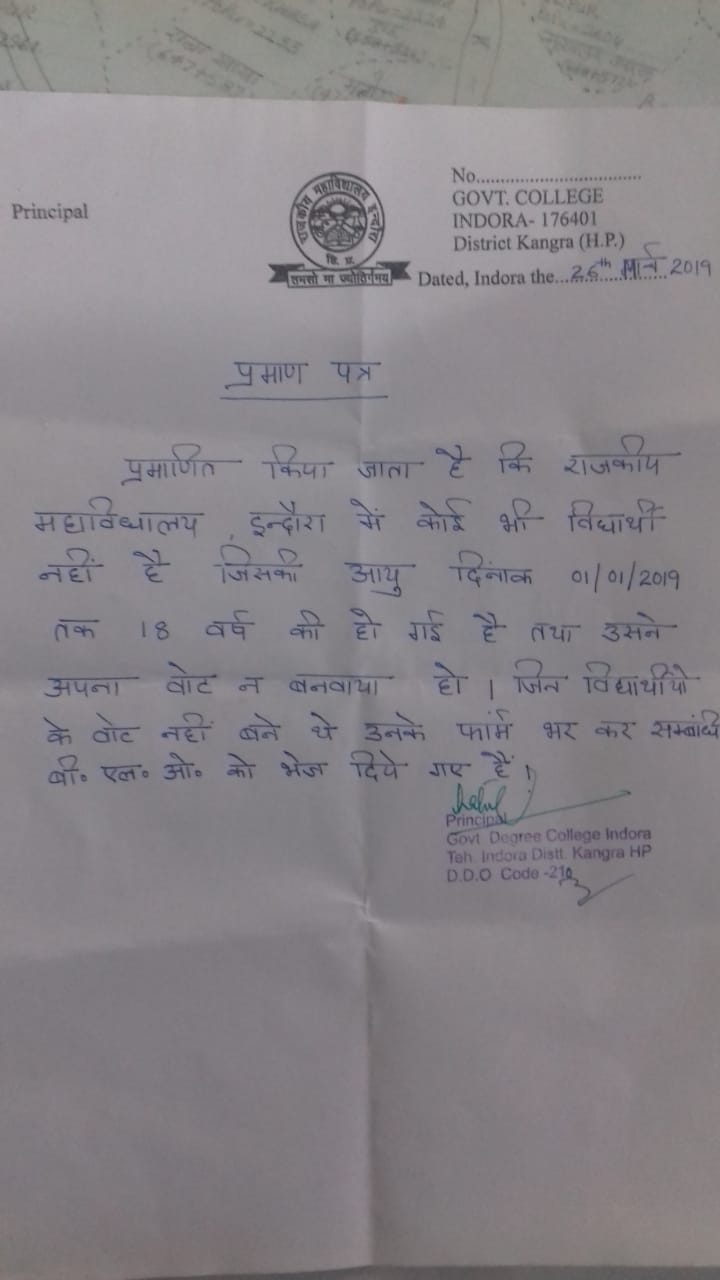 No.................................
Principal
GOVT. COLLEGE
INDORA- 176401
District Kangra (H.P.)
राजकीय महाविद्यालय इन्दौरा
हि. प्र.
तमसो मा ज्योतिर्गमय
Dated, Indora the...26th मार्च 2019
प्रमाण पत्र
प्रमाणित किया जाता है कि राजकीय
महाविद्यालय, इन्दौरा में कोई भी विद्यार्थी
नहीं है जिसकी आयु दिनांक 01/01/2019
तक 18 वर्ष की हो गई है तथा उसने
अपना वोट न बनवाया हो। जिन विद्यार्थीयों
के वोट नहीं बने थे उनके फार्म भर कर सम्बंधि
बी॰ एल॰ ओ॰ को भेज दिये गए हैं।
Principal
Govt. Degree College Indora
Teh. Indora Distt. Kangra HP
D.D.O Code -210